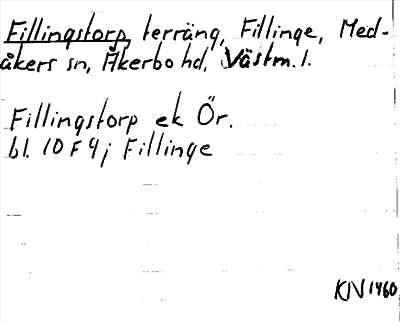 Fillingstorp terräng, Fillinge, Med-
åkers sn, Åkerbo hd, Västm. l.
Fillingstorp ek Ör.
bl. 10 F 4 j Fillinge
KN 1960